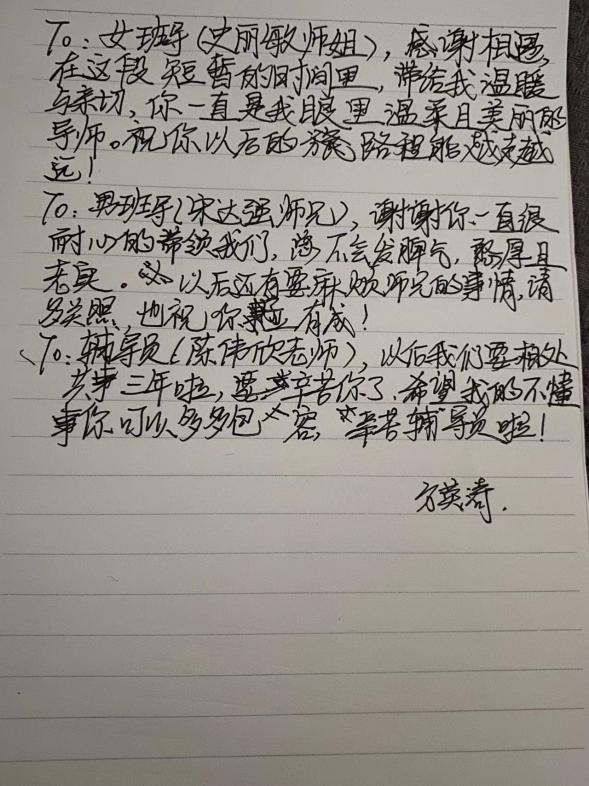 To：女班导(史丽敏师姐)，感谢相遇，
在这段短暂的时间里，带给我温暖
与亲切，你一直是我眼里温柔且美丽的
导师。祝你以后的路程能越走越
远！
To：男班导(宋达强师兄)，谢谢你一直很
耐心的带领我们，不会发脾气，憨厚且
老实。以后还有要麻烦师兄的事情，请
多关照，也祝你事业有成！
To：辅导员(陈伟欣老师)，以后我们要相处
共事三年啦，要辛苦你了，希望我的不懂
事你可以多多包容，辛苦辅导员啦！
方英涛.